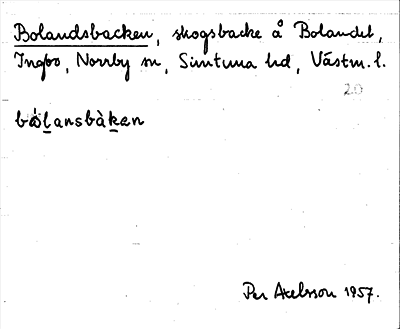 Bolandsbacken, skogsbacke å Bolandet,
Ingbo, Norrby sn, Simtuna hd, Västm. l.
20
bólansbàken
Per Axelsson 1957.